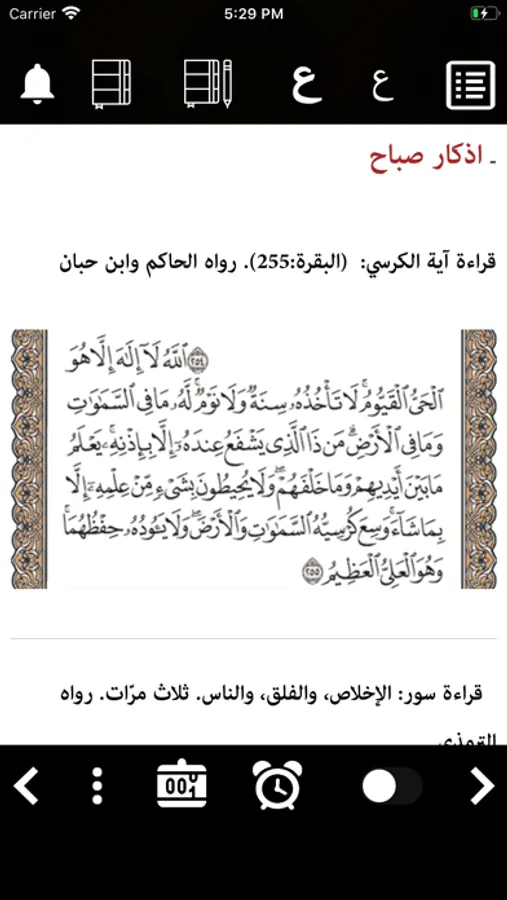 Carrier 5:29 PM
ع ع
- اذكار صباح
قراءة آية الكرسي: (البقرة:255). رواه الحاكم وابن حبان
٢٥٤ ٱللَّهُ لَآ إِلَٰهَ إِلَّا هُوَ
ٱلْحَىُّ ٱلْقَيُّومُ ۚ لَا تَأْخُذُهُۥ سِنَةٌ وَلَا نَوْمٌ ۚ لَّهُۥ مَا فِى ٱلسَّمَٰوَٰتِ
وَمَا فِى ٱلْأَرْضِ ۗ مَن ذَا ٱلَّذِى يَشْفَعُ عِندَهُۥٓ إِلَّا بِإِذْنِهِۦ ۚ يَعْلَمُ
مَا بَيْنَ أَيْدِيهِمْ وَمَا خَلْفَهُمْ ۖ وَلَا يُحِيطُونَ بِشَىْءٍ مِّنْ عِلْمِهِۦٓ إِلَّا
بِمَا شَآءَ ۚ وَسِعَ كُرْسِيُّهُ ٱلسَّمَٰوَٰتِ وَٱلْأَرْضَ ۖ وَلَا يَـُٔودُهُۥ حِفْظُهُمَا ۚ
وَهُوَ ٱلْعَلِىُّ ٱلْعَظِيمُ ٢٥٥
قراءة سور: الإخلاص، والفلق، والناس. ثلاث مرّات. رواه
الترمذي